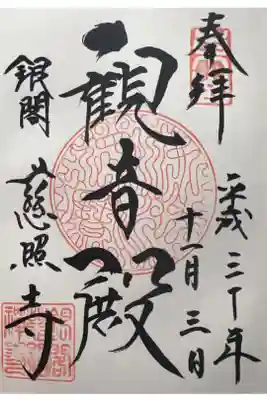 奉拝
平成三十年
十一月三日
観音殿
銀閣慈照寺